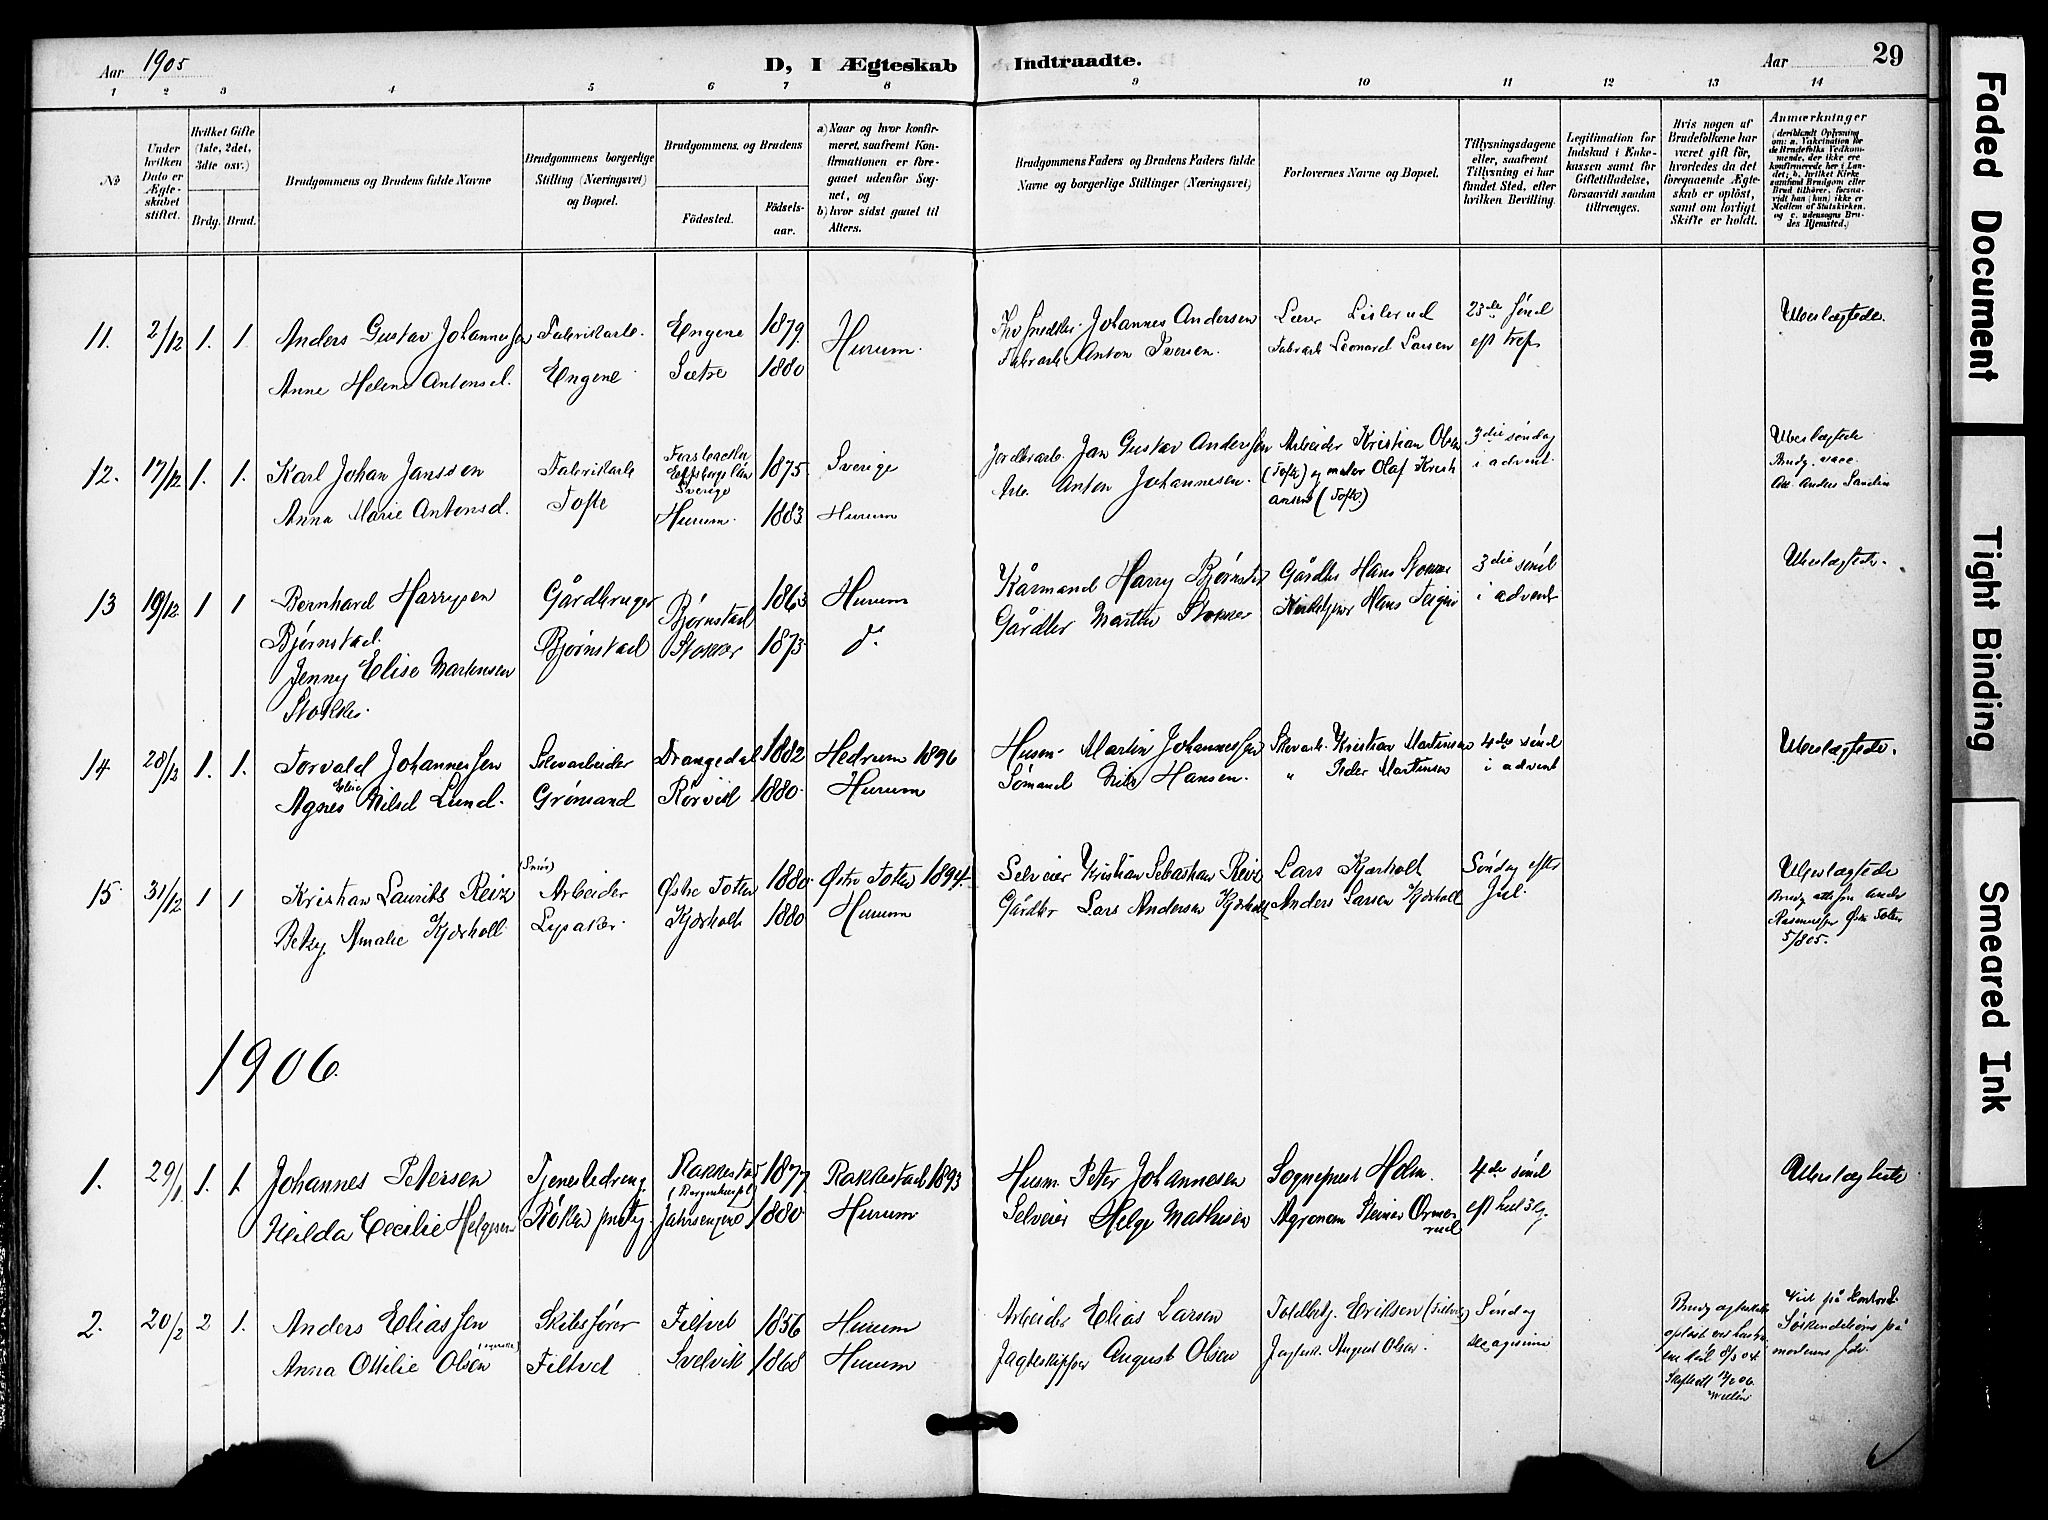 Aar 1905
D, I Ægteskab Indtraadte.
Aar
29
1 2 3 4 5 6 7 8 9 10 11 12 13 14
No
Under hvilken Dato er Ægteskabet stiftet.
Hvilket Gifte (1ste, 2det, 3die osv.)
Brdg. Brud.
Brudgommens og Brudens fulde Navne
Brudgommens borgerlige Stilling (Næringsvei) og Bopæl.
Brudgommens og Brudens
Fødested. Fødselsaar.
a) Naar og hvor konfirmeret, saafremt Konfirmationen er foregaaet udenfor Sognet, og
b) hvor sidst gaaet til Alters.
Brudgommens Faders og Brudens Faders fulde Navne og borgerlige Stillinger (Næringsvei)
Forlovernes Navne og Bopæl.
Tillysningsdagene eller, saafremt Tillysning ei har fundet Sted, efter hvilken Bevilling.
Legitimation for Indskud i Enkekassen samt for Giftetilladelse, forsaavidt saadan tiltrænges.
Hvis nogen af Brudefolkene har været gift før, hvorledes da det foregaaende Ægteskab er opløst, samt om lovligt Skifte er holdt.
Anmærkninger (deriblandt Oplysning om: a. Vakcination for de Brudefolks Vedkommende, der ikke ere konfirmerede her i Landet; b. hvilket Kirkesamfund Brudgom eller Brud tilhører, forsaavidt han (hun) ikke er Medlem af Statskirken, og c. udensogns Brudes Hjemsted.)
11. 2/12 1. 1 Anders Gustav Johannessen Fabrikarb. Engene 1879. Hurum. Johannes Andersen Lærer Lislerud 23de sønd Ubeslægtede.
Anne Helene Antonsd. Engene Sætre 1880 Fabrarb Anton Iversen. Fabrarb Leonard Larsen eft tref
12. 17/12 1. 1. Karl Johan Jansson Fabrikarb Sverige 1875. Sverige Jordbrarb. Jan Gustav Anderssen Arbeider Kristian Olsen 3die søndag Ubeslægtede
Anna Marie Antonsd. Tofte Hurum. 1883 Hurum Arb. Anton Johannesen. (Tofte) og Olaf Kristiansen (Tofte) i advent Brudg. vacc. Att. Anders Sandin
13 19/12 1 1 Bernhard Harrysen Gårdbruger Bjørnstad 1863 Hurum Kårmand Harry Bjørnstad Gårdbr Hans Stokke 3die sønd Ubeslægtede.
Bjørnstad.
Jenny Elise Martensen Bjørnstad Stokker 1873 do. Gårdbr Martin Stokker Hans i advent
Stokke.
14 28/12 1. 1. Torvald Johannessen Selvarbeider Drangedal 1882 Hedrum 1896 Husm. Martin Johannessen Kristian Martinsen 4de sønd Ubeslægtede.
Agnes Elise Nilsd Lund. Grønsand Rørvik 1880. Hurum Sømand Nils Hansen. " Peder Martinsen i advent
15. 31/12 1 1 Kristian Laurits Reiz Arbeider Østre Toten 1880. Østre Toten 1894. Selveier Kristian Sebastian Reiz Lars Kjærholt Søndag efter Ubeslægtede
Betzy Amalie Kjærholt. Lysaker. Kjærholt 1880 Hurum Gårdbr Lars Andersen Kjærholt Anders Larsen Kjærholt Jul Brudg 5/8 05.
1906.
1. 29/1 1. 1. Johannes Petersen Tjenestedreng Rakkestad 1877. Rakkestad 1893 Husm. Peter Johannesen Sogneprest Holm. 4de sønd Ubeslægtede
Hilda Cecilie Helgesen Røken prstg. 1880 Hurum Selveier Helge Mathisen Agronom Steiner Ormerud eft hel 3 kg.
2. 20/2 2 1. Anders Eliassen Skibsfører Filtvet 1856 Hurum Arbeider Elias Larsen Toldbetj. Eriksen (Filtvet) Søndag Viet på kontoret.
Anna Ottilie Olsen Filtved Svelvik 1868 Hurum Jagteskipper August Olsen August Olsen. sexagesima
Faded Document
Tight Binding
Smeared Ink